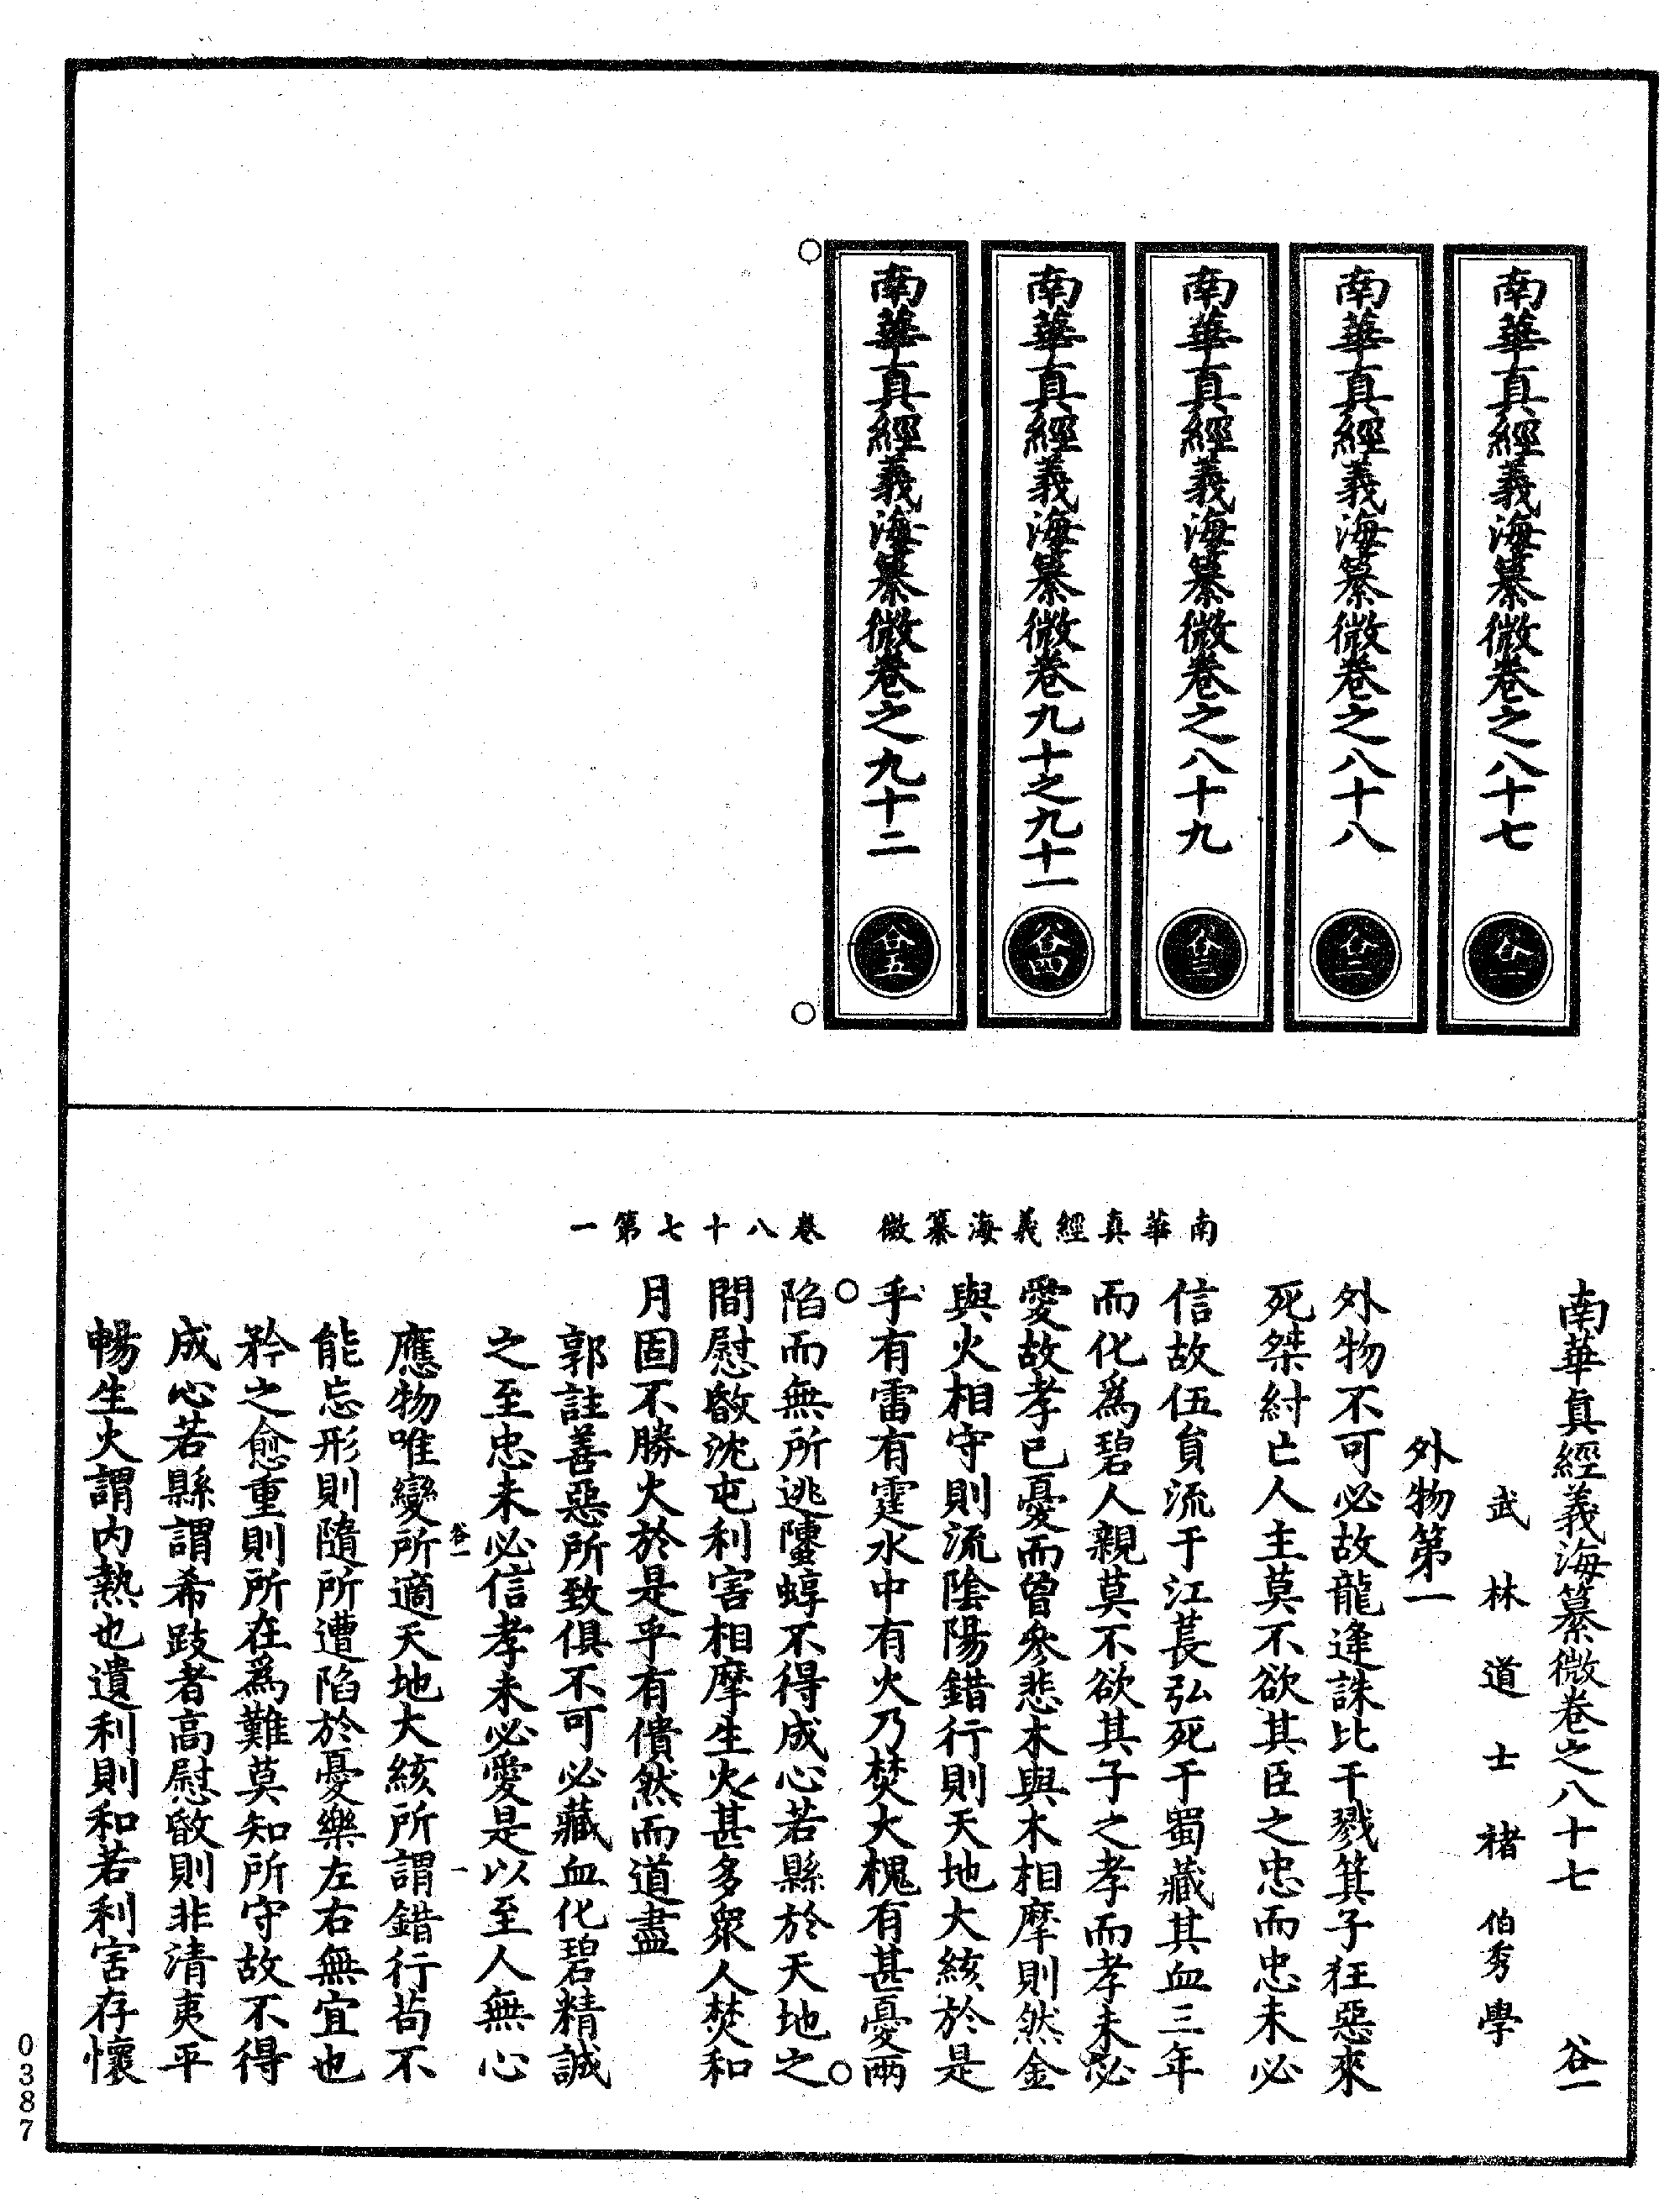 南華真經義海纂微卷之八十七 谷一
南華真經義海纂微卷之八十八 谷二
南華真經義海纂微卷之八十九 谷三
南華真經義海纂微卷九十之九十一 谷四
南華真經義海纂微卷之九十二 谷五
南華真經義海纂微 卷八十七第一
南華真經義海纂微卷之八十七 谷一
武林道士褚伯秀學
外物第一
外物不可必故龍逢誅比干戮箕子狂惡來
死桀紂亡人主莫不欲其臣之忠而忠未必
信故伍員流于江萇弘死于蜀藏其血三年
而化為碧人親莫不欲其子之孝而孝未必
愛故孝已憂而曾參悲木與木相摩則然金
與火相守則流陰陽錯行則天地大絯於是
乎有雷有霆水中有火乃焚大槐有甚憂兩
陷而無所逃螴蜳不得成心若縣於天地之
間慰暋沈屯利害相摩生火甚多衆人焚和
月固不勝火於是乎有僓然而道盡
郭註善惡所致俱不可必藏血化碧精誠
之至忠未必信孝未必愛是以至人無心
谷一 一
應物唯變所適天地大絯所謂錯行苟不
能忘形則隨所遭陷於憂樂左右無宜也
矜之愈重則所在為難莫知所守故不得
成心若縣謂希跂者高慰暋則非清夷平
暢生火謂內熱也遺利則和若利害存懷
0387